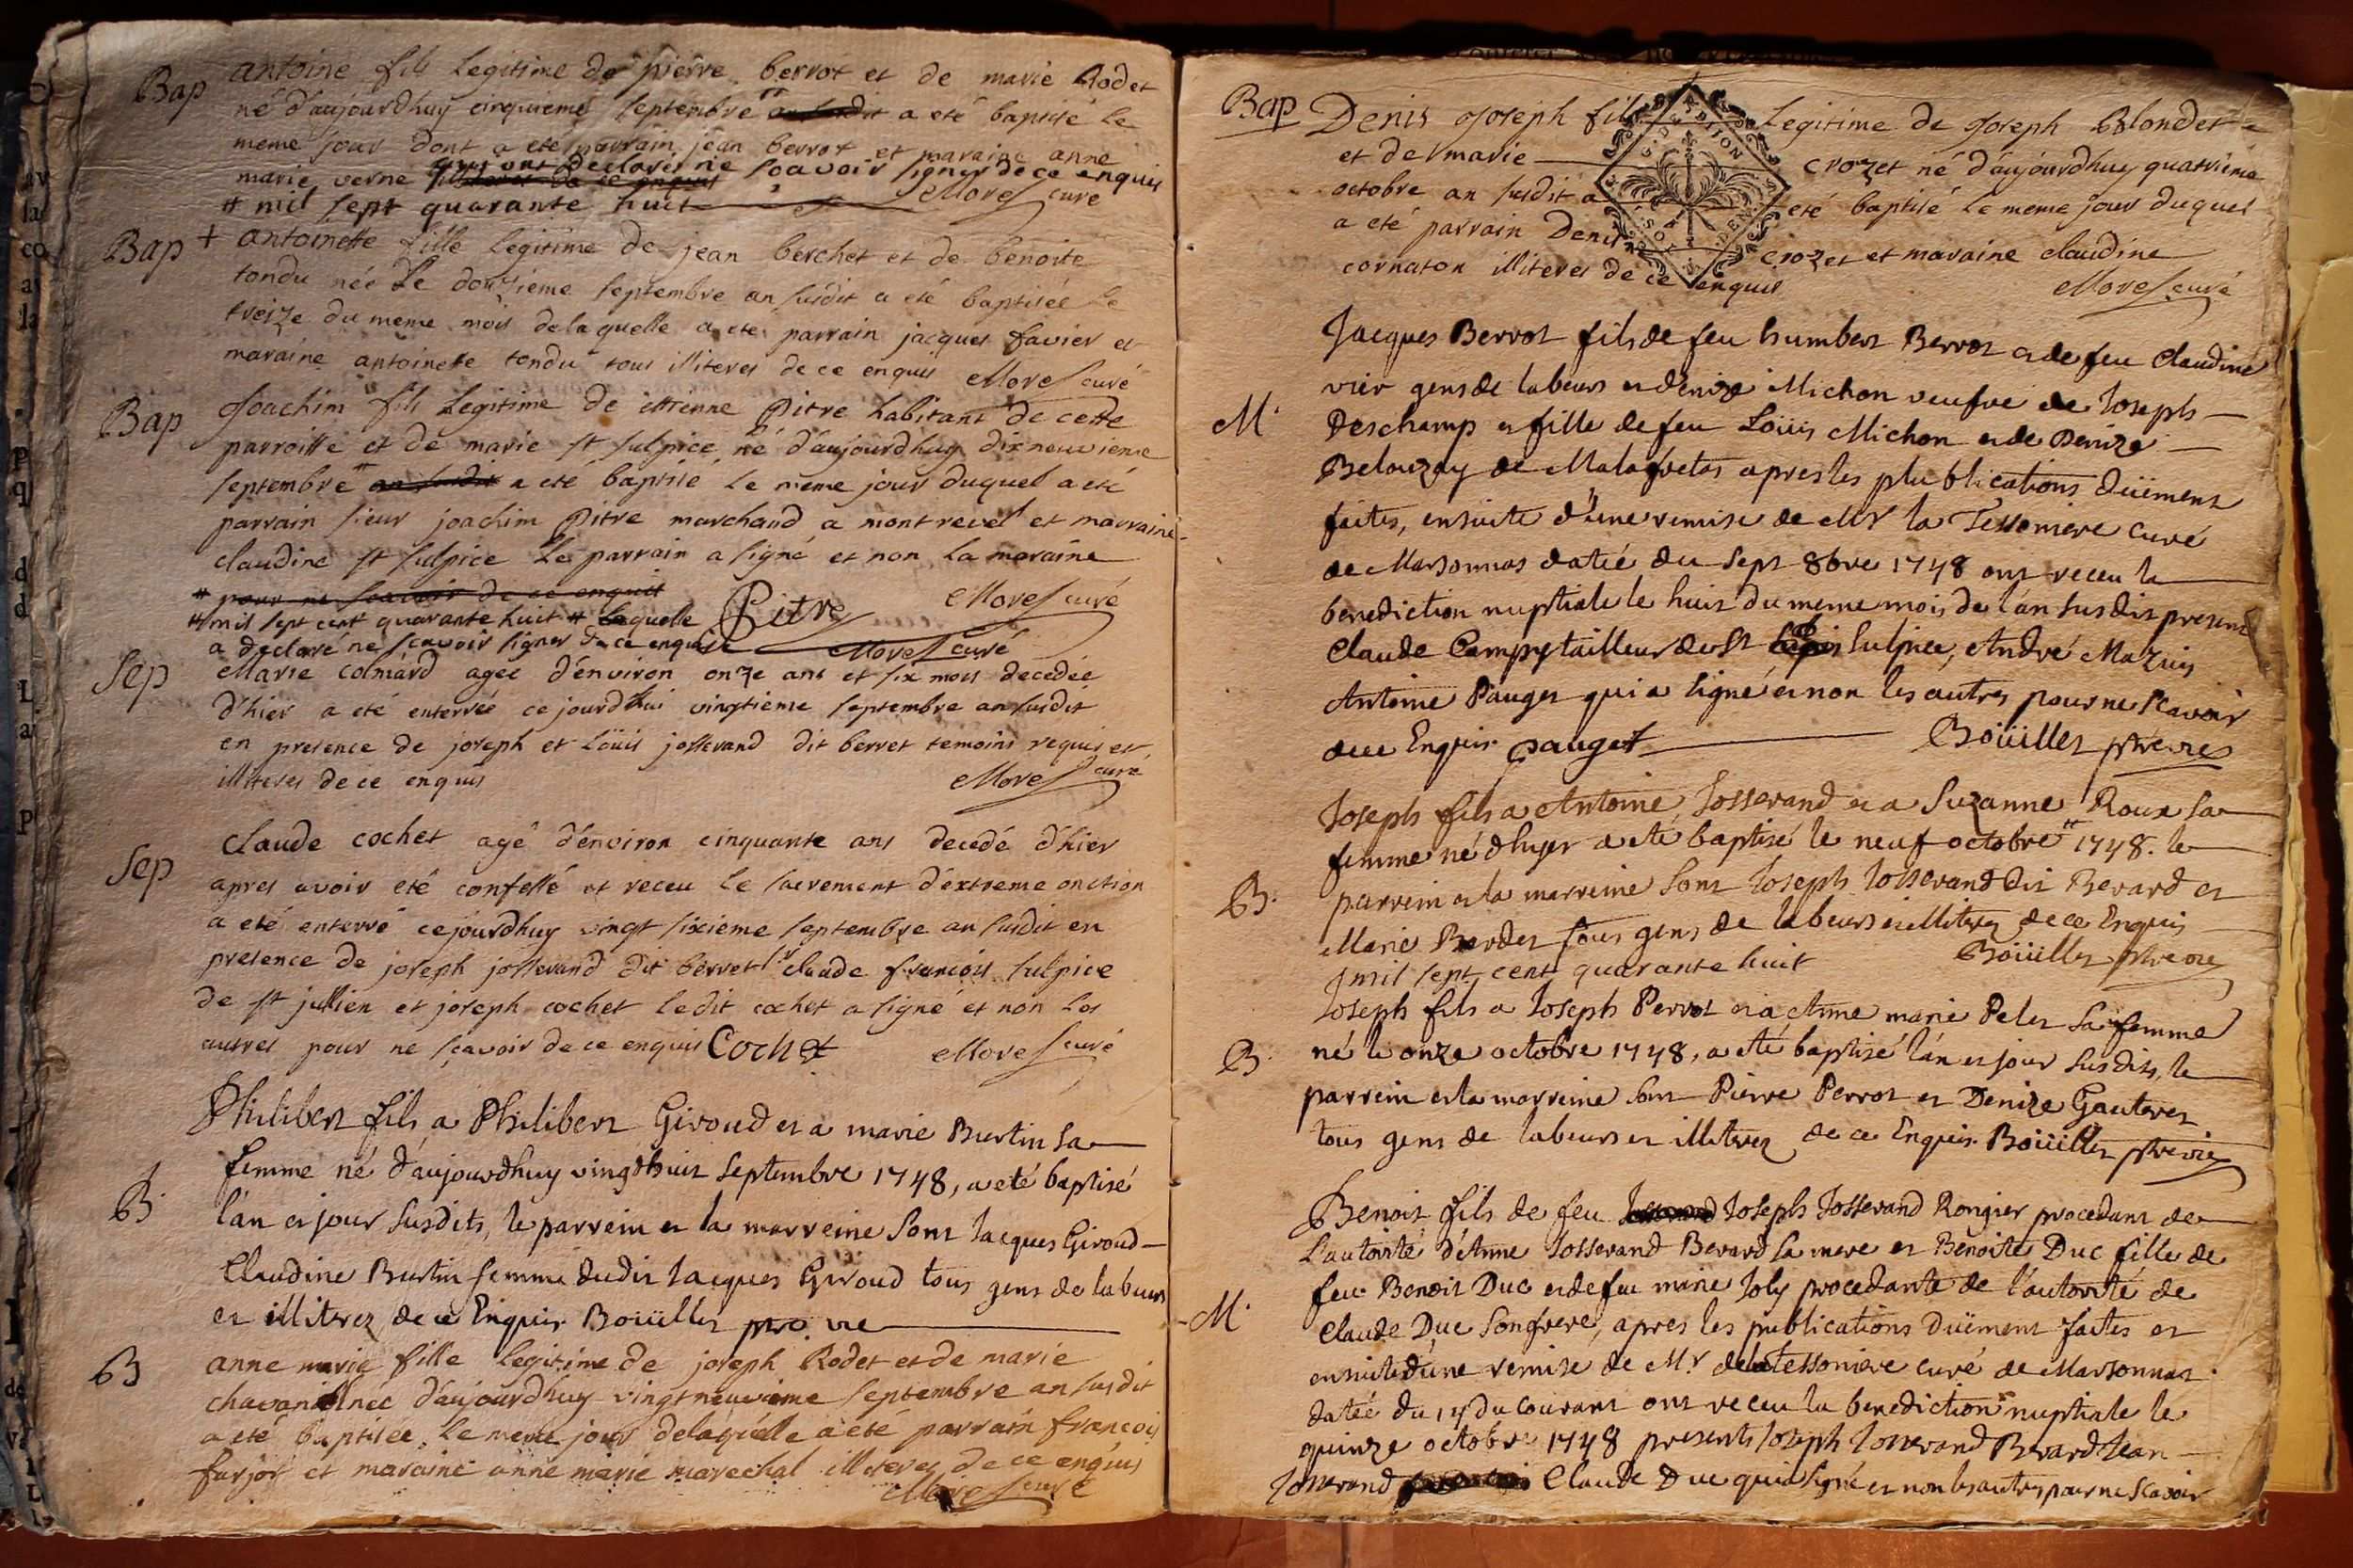 Bap
antoine fils legitime de pierre berrot et de marie Rodet
né d'aujourdhuy cinquieme septembre # an susdit a eté baptisé le
meme jour dont a eté parrain jean berrot et maraine anne
marie verne qui ont declarés ne scavoir signer de ce enquis
# mil sept quarante huit Morel curé
Bap + antoinette fille legitime de jean berchet et de benoite
tondu née Le douzieme septembre an susdit a eté baptisée le
treize du meme mois de laquelle a eté parrain jacques favier et
maraine antoinete tondu tous illiteres de ce enquis Morel curé
Bap
Joachim fils legitime de ettienne Pitre habitant de cette
parroisse et de marie st sulpice né d'aujourdhuy dix neuvieme
septembre # an susdit a eté baptisé le meme jour duquel a eté
parrain sieur joachim Pitre marchand a montrevel et marraine
claudine st sulpice Le parrain a signé et non la maraine
# pour ne scavoir de ce enquit Morel curé
# mil sept cent quarante huit # laquelle Pitre
a declaré ne scavoir signer de ce enquise Morel curé
Sep
Marie colmard agée d'énviron onze ans et six mois decedée
d'hier a eté enterrée ce jourdhui vingtieme septembre an susdit
en presence de joseph et Loüis josserand dit berret temoins requis et
illiteres de ce enquis Morel curé
Sep
Claude cochet agé d'énviron cinquante ans decedé d'hier
apres avoir eté confessé et receu le sacrement d'éxtreme onction
a eté enterré cejourdhuy vingt sixieme septembre an susdit en
presence de joseph josserand dit berret claude francois sulpice
de st jullien et joseph cochet ledit cochet a signé et non les
autres pour ne sçavoir de ce enquis Cochet Morel curé
B.
Philibert fils a Philibert Giroud et a marie Burtin sa
femme né d'aujourdhuy vingthuit septembre 1748, a eté baptisé
l'án et jour susdits, le parrein et la marreine sont Jacques Giroud
Claudine Burtin femme dudit Jacques Giroud tous gens de labeurs
et illitrez de ce Enquis Boüillet pro. vre
B
anne marie fille legitime de joseph Rodet et de marie
née d'aujourdhuy vingt neuvieme septembre an susdit
a eté baptisée le meme jour de laquelle a eté parrain francois
farjot et maraine anne marie marechal illiteres de ce enquis
Morel curé
Bap
Denis Joseph fils Legitime de Joseph Blondet
et de marie crozet né d'aujourdhuy quatrieme
octobre an susdit a eté baptisé le meme jour duquel
a eté parrain Denis crozet et maraine claudine
cornaton illiteres de ce enquis Morel curé
M.
Jacques Berrot fils de feu humbert Berrot et de feu Claudine
vier gens de labeurs et denize Michon veufve de Joseph
Deschamp et fille de feu Loüis Michon et de Denize
Belouzay de Malafretas apres les publications düement
faites, ensuite d'une remise de Mr la Tessoniere curé
de Marsonnas datée du sept 8bre 1748 ont receu la
benediction nuptiale le huit du meme mois de l'án susdit present
Claude Campy tailleur de St Sulpice, André Mazuis
Antoine Pauget qui a signé et non les autres pour ne scavoir
de ce Enquis pauget Boüillet ptre vre
B.
Joseph fils a Antoine Josserand et a Suzanne Roux sa
femme né d'hyer a eté baptisé le neuf octobre # 1748. le
parrein et la marreine sont Joseph Josserand dit Berard et
Marie Bordet tous gens de labeurs et illitrez de ce Enquis
# mil sept cent quarante huit Boüillet ptre vre
B.
Joseph fils a Joseph Perrot et a Anne marie Pelet sa femme
né le onze octobre 1748, a eté baptisé l'án et jour susdits, le
parrein et la marreine sont Pierre Perrot et Denize Gauteret
tous gens de labeurs et illitrez de ce Enquis Boüillet ptre vre
M.
Benoit fils de feu Josserand Joseph Josserand Rongier procedant de
L'autorité d'Anne Josserand Berard sa mere et Benoite Duc fille de
feu Benoit Duc et de feu marie Joly procedante de l'autorité de
Claude Duc son frere, apres les publications düement faites et
ensuite d'une remise de Mr de la Tessoniere curé de Marsonnas
datée du 14 du courant ont receu la benediction nuptiale le
quinze octobre 1748 presents Joseph Josserand Berard Jean
Josserand Claude Duc qui a signé et non les autres pour ne scavoir